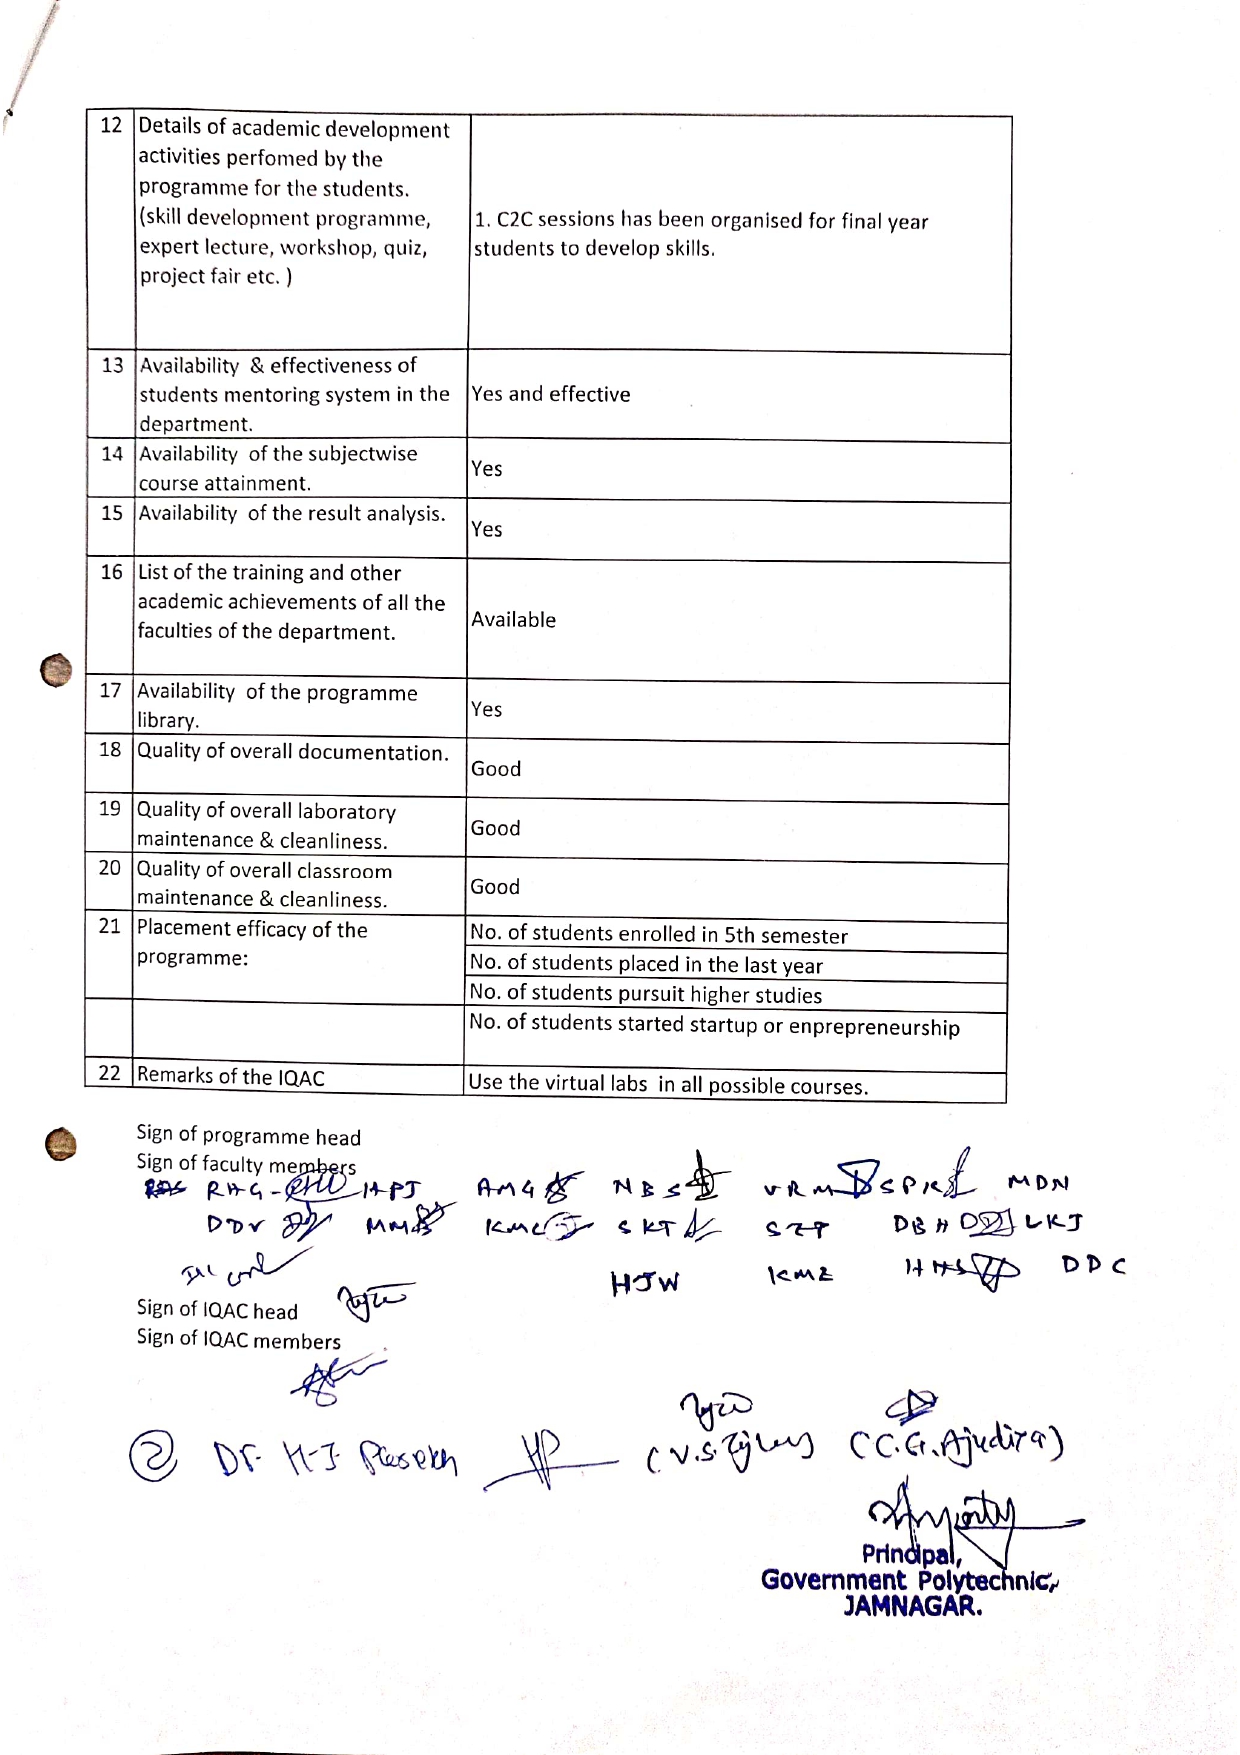 12 Details of academic development
activities perfomed by the
programme for the students.
(skill development programme,
expert lecture, workshop, quiz,
project fair etc. )
1. C2C sessions has been organised for final year
students to develop skills.
13 Availability & effectiveness of
students mentoring system in the
department.
Yes and effective
14 Availability of the subjectwise
course attainment.
Yes
15 Availability of the result analysis.
Yes
16 List of the training and other
academic achievements of all the
faculties of the department.
Available
17 Availability of the programme
library.
Yes
18 Quality of overall documentation.
Good
19 Quality of overall laboratory
maintenance & cleanliness.
Good
20 Quality of overall classroom
maintenance & cleanliness.
Good
21 Placement efficacy of the
programme:
No. of students enrolled in 5th semester
No. of students placed in the last year
No. of students pursuit higher studies
No. of students started startup or enprepreneurship
22 Remarks of the IQAC
Use the virtual labs in all possible courses.
Sign of programme head
Sign of faculty members
RHG - HPJ AMG NBS VRM SPK MDN
DDV MMB KMC SKT SZP DBH LKJ
HJW KMZ HHS DDC
Sign of IQAC head
Sign of IQAC members
② Dr. H-J (V.S. (C.G.Ajudiya)
Principal,
Government Polytechnic,
JAMNAGAR.